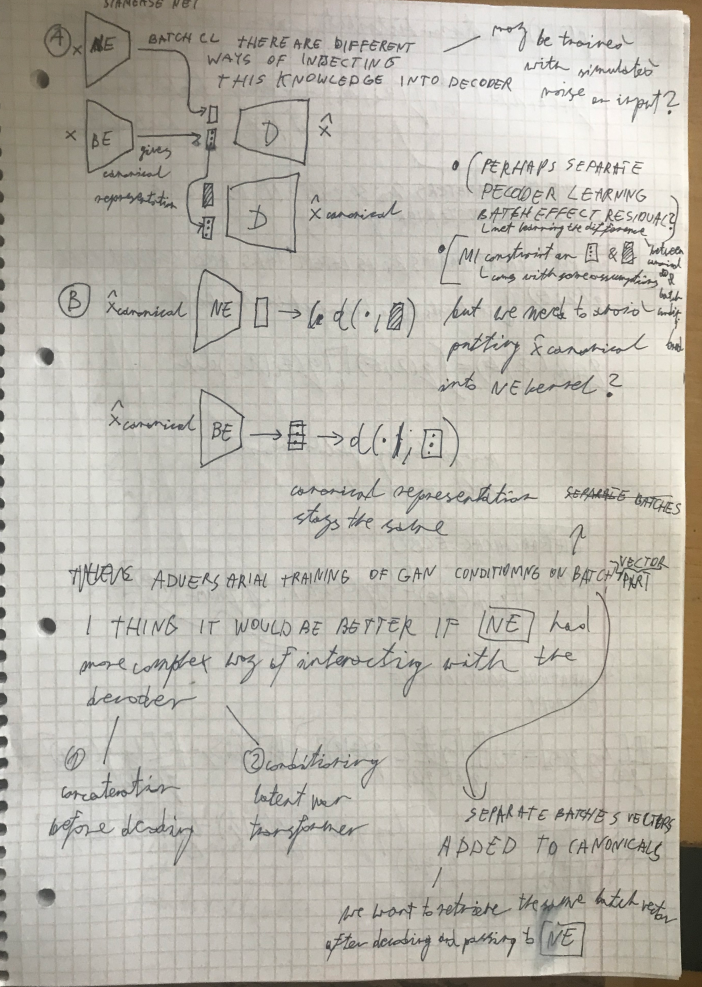 SIAMEASE NET
A
x NE BATCH CL THERE ARE DIFFERENT
WAYS OF INJECTING
THIS KNOWLEDGE INTO DECODER
may be trained
with simulated
noise on input?
x BE gives D x̂
canonical
representation D x̂canonical
• (PERHAPS SEPARATE
DECODER LEARNING
BATCH EFFECT RESIDUAL?)
net learning the difference
between
canonical
batch
• [MI constraint on &
comes with some assumptions
B x̂canonical NE → d(·, ) but we need to avoid
putting x̂canonical
into NE kernel?
x̂canonical BE → → d(·, )
canonical representation
stays the same
SEPARATE BATCHES
ADVERSARIAL TRAINING OF GAN CONDITIONING ON BATCH VECTOR
PART
I THING IT WOULD BE BETTER IF NE had
more complex way of interacting with the
decoder
1
concatenation
before decoding
2 conditioning
latent var
transformer
SEPARATE BATCHES VECTORS
ADDED TO CANONICALS
we want to retrieve the same batch vector
after decoding and passing to NE